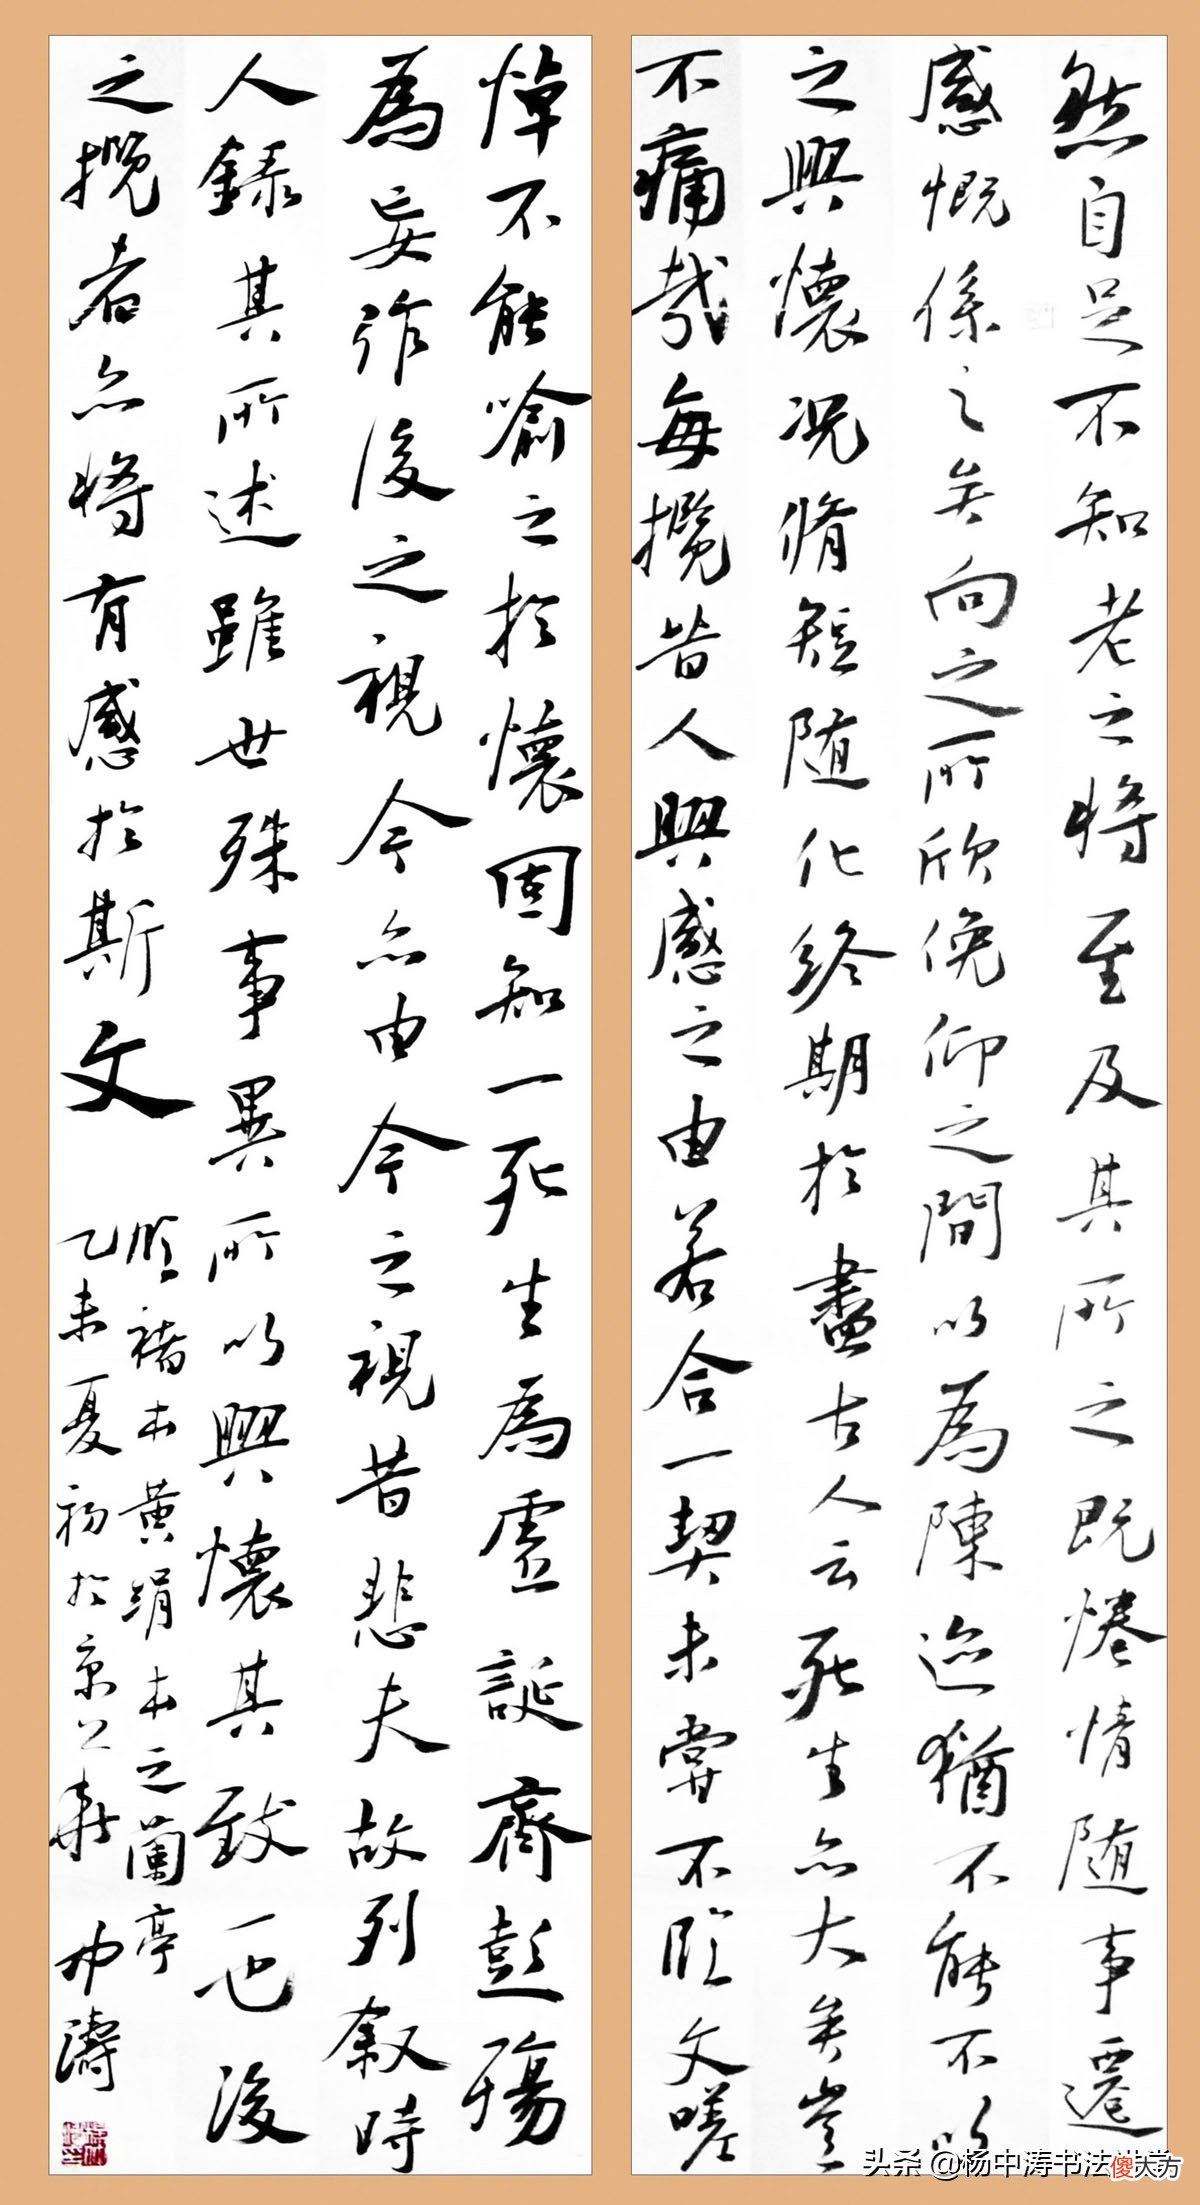 然自足不知老之將至及其所之既惓情随事遷
感慨係之矣向之所欣俛仰之間以為陳迹猶不能不以
之興懷況脩短随化終期於盡古人云死生亦大矣豈
不痛哉每攬昔人興感之由若合一契未嘗不臨文嗟
悼不能喻之於懷固知一死生為虛誕齊彭殤
為妄作後之視今亦由今之視昔悲夫故列叙時
人錄其所述雖世殊事異所以興懷其致一也後
之攬者亦將有感於斯文
臨褚本黃絹本之蘭亭
乙未夏初於京 中濤
头条 @杨中涛书法
傻大方